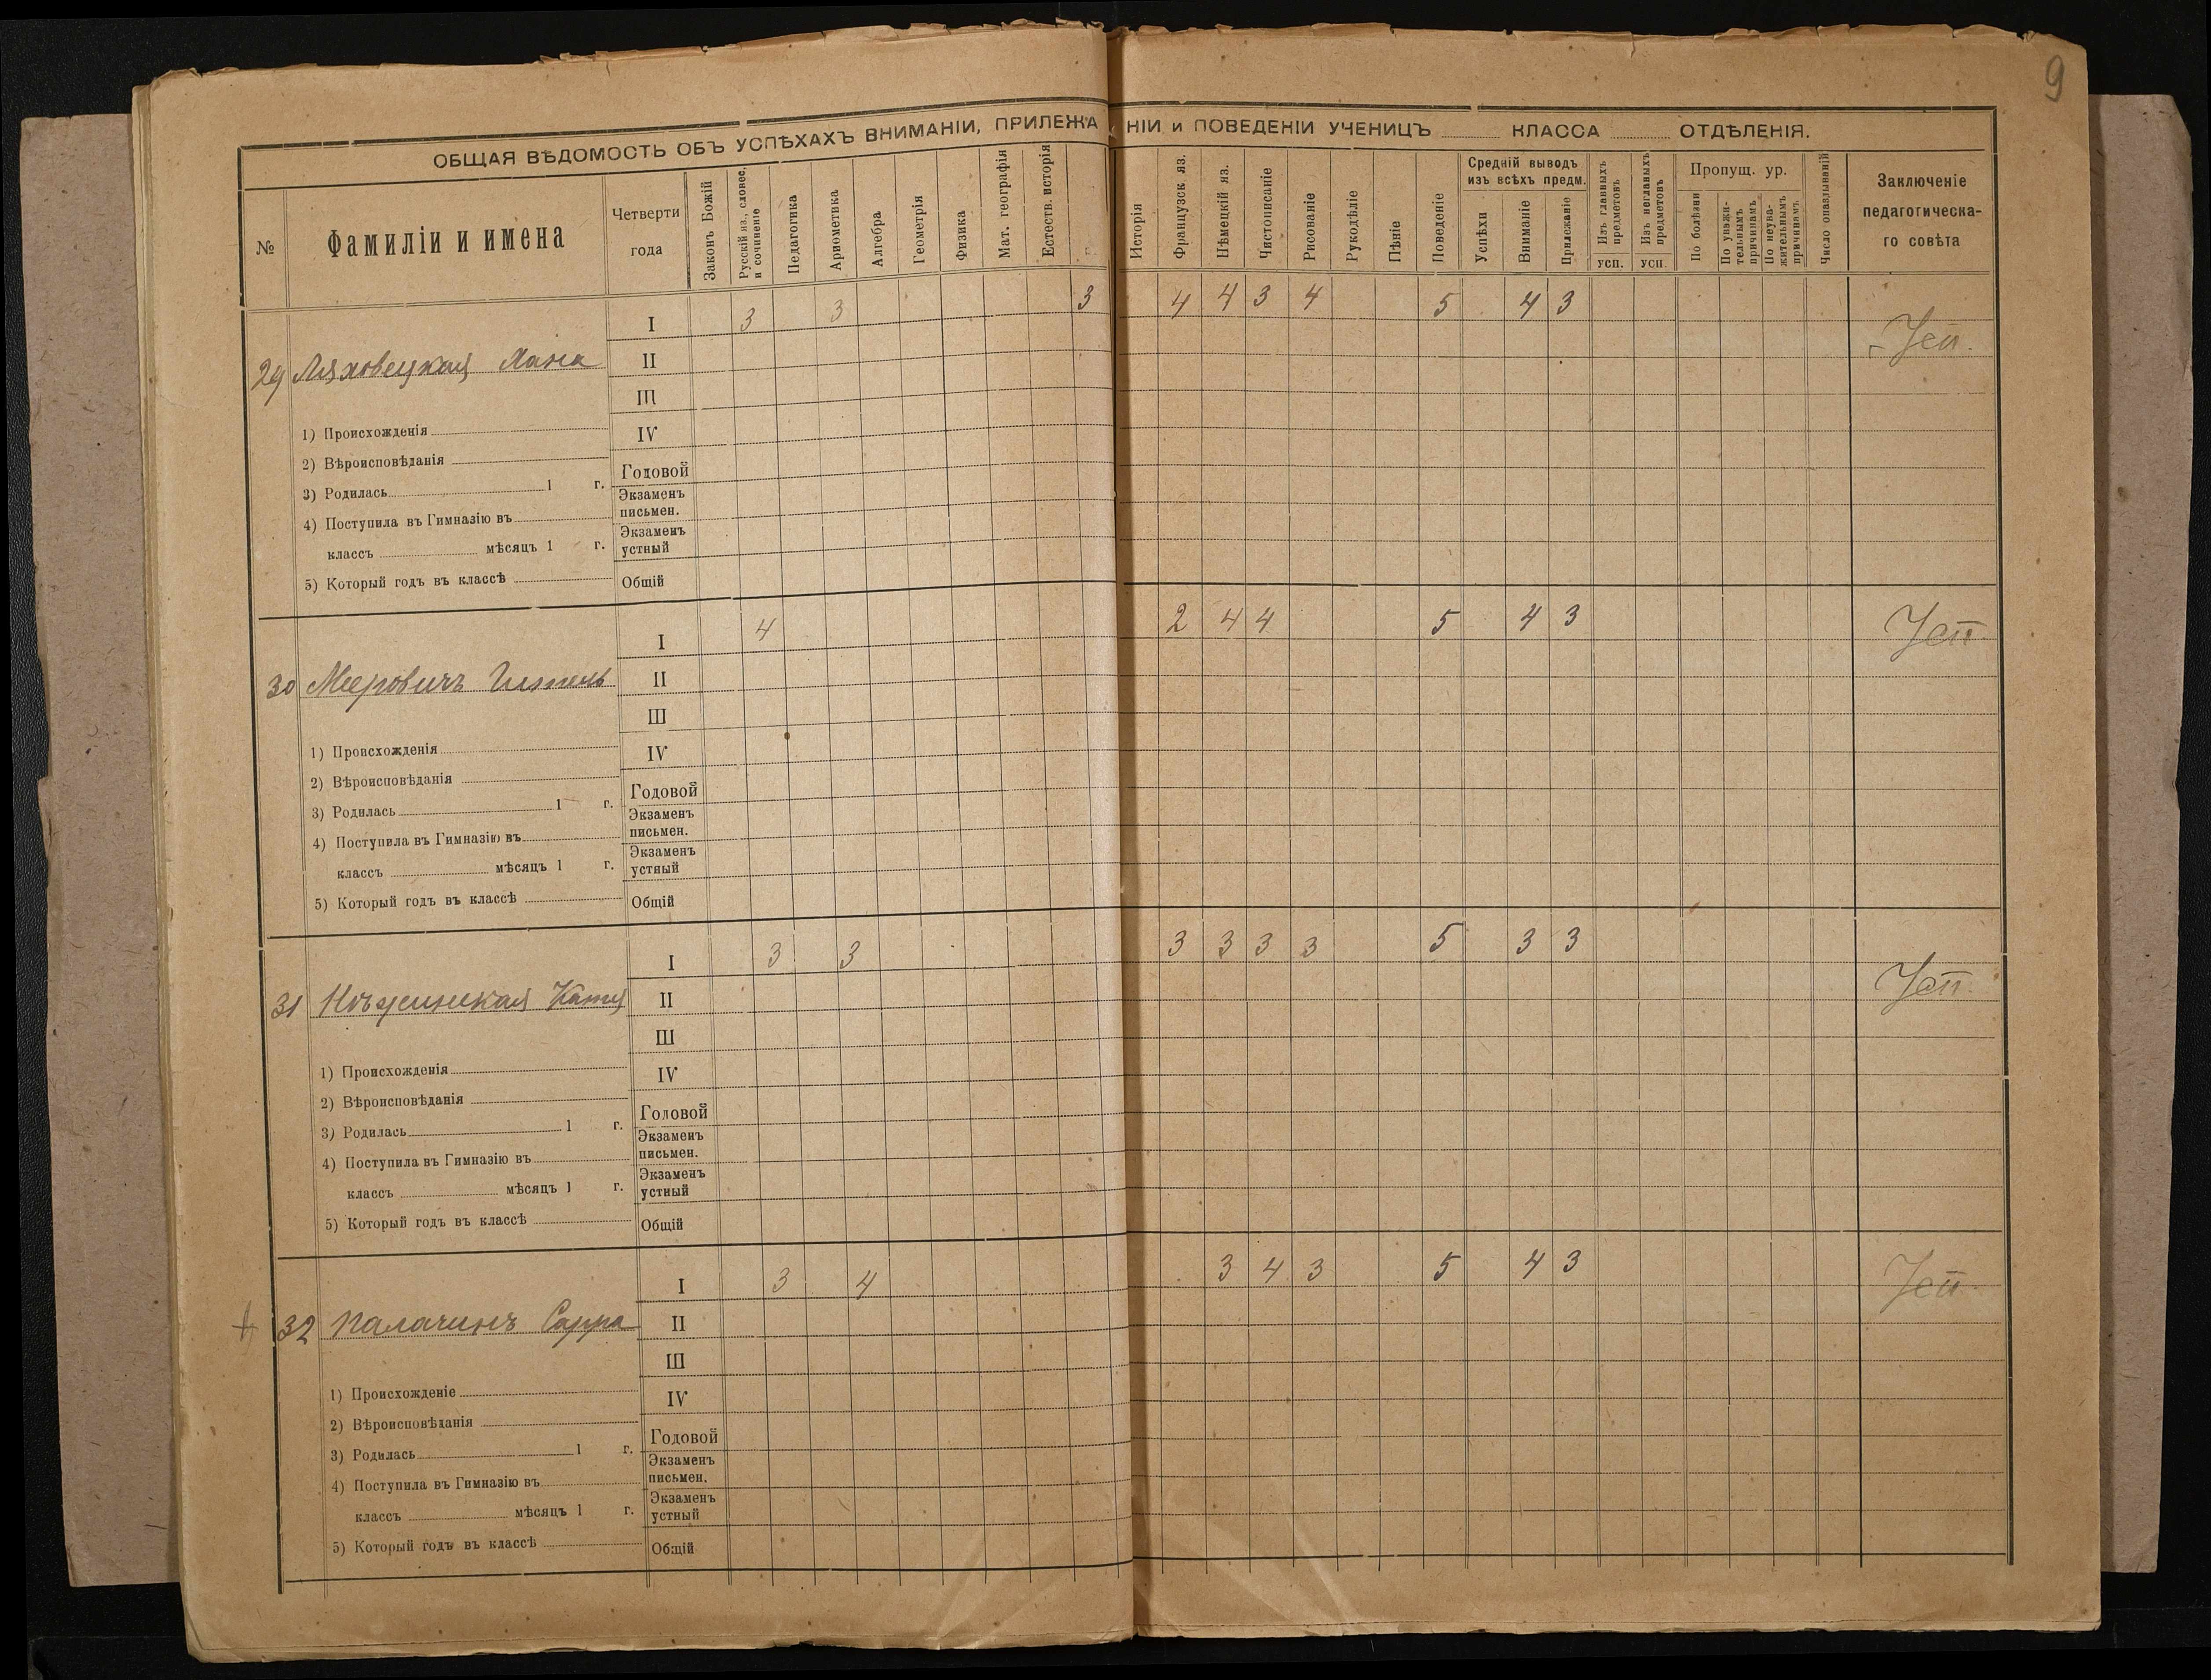 9
ОБЩАЯ ВѢДОМОСТЬ ОБЪ УСПѢХАХЪ ВНИМАНІИ, ПРИЛЕЖА НІИ и ПОВЕДЕНІИ УЧЕНИЦЪ КЛАССА ОТДѢЛЕНІЯ.
№
Фамиліи и имена
Четверти года
Законъ Божій
Русскій яз., словес. и сочиненіе
Педагогика
Арифметика
Алгебра
Геометрія
Физика
Мат. географія
Естеств. исторія
Исторія
Французск яз.
Нѣмецкій яз.
Чистописаніе
Рисованіе
Рукодѣліе
Пѣніе
Поведеніе
Средній выводъ изъ всѣхъ предм.
Успѣхи
Вниманіе
Прилежаніе
Изъ главныхъ предметовъ
усп.
Изъ неглавныхъ предметовъ
усп.
Пропущ. ур.
По болѣзни
По уважительнымъ причинамъ
По неуважительнымъ причинамъ
Число опаздываній
Заключеніе педагогическа-го совѣта
29 Ляховецкая Хана
I 3 3 3 4 4 3 4 5 4 3 Усп.
II
III
IV
1) Происхожденія
2) Вѣроисповѣданія
Годовой
3) Родилась 1 г.
Экзаменъ письмен.
4) Поступила въ Гимназію въ
классъ мѣсяцъ 1 г.
Экзаменъ устный
5) Который годъ въ классѣ
Общій
30 Мееровичъ Гитель
I 4 2 4 4 5 4 3 Усп.
II
III
IV
1) Происхожденія
2) Вѣроисповѣданія
Годовой
3) Родилась 1 г.
Экзаменъ письмен.
4) Поступила въ Гимназію въ
классъ мѣсяцъ 1 г.
Экзаменъ устный
5) Который годъ въ классѣ
Общій
31 Нѣжинская Катя
I 3 3 3 3 3 3 5 3 3 Усп.
II
III
IV
1) Происхожденія
2) Вѣроисповѣданія
Годовой
3) Родилась 1 г.
Экзаменъ письмен.
4) Поступила въ Гимназію въ
классъ мѣсяцъ 1 г.
Экзаменъ устный
5) Который годъ въ классѣ
Общій
32 Палачинъ Сарра
I 3 4 3 4 3 5 4 3 Усп.
II
III
IV
1) Происхожденіе
2) Вѣроисповѣданія
Годовой
3) Родилась 1 г.
Экзаменъ письмен.
4) Поступила въ Гимназію въ
классъ мѣсяцъ 1 г.
Экзаменъ устный
5) Который годъ въ классѣ
Общій